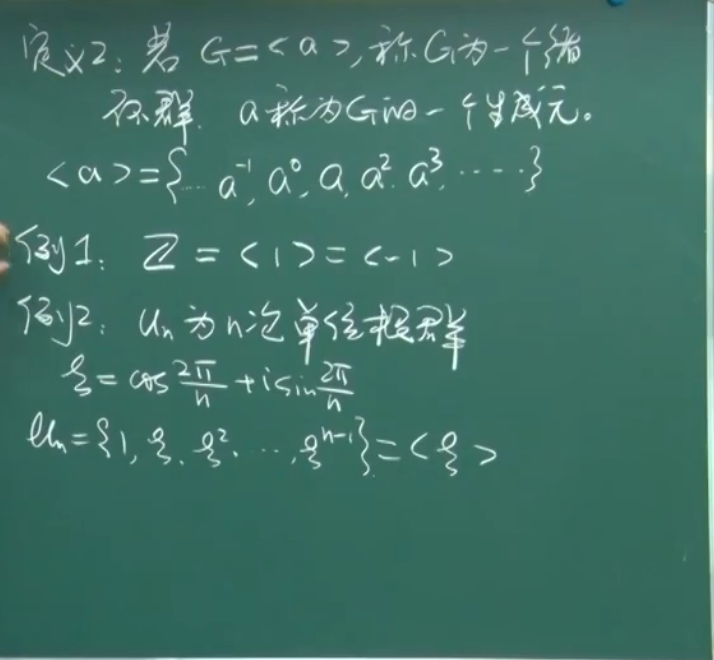 定义2: 若 G=<a>, 称G为一个循
环群. a称为G的一个生成元。
<a>={… a⁻¹, a⁰, a, a², a³, ……}
例1: ℤ = <1> = <-1>
例2: Uₙ为n次单位根群
ξ = cos 2π/n + i sin 2π/n
Uₙ={1, ξ, ξ², …, ξⁿ⁻¹}=<ξ>